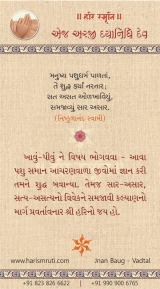 ॥ હરિ સ્મૃતિ ॥
એજ અરજી દયાનિધિ દેવ
મનુષ્ય પશુધર્મ પાળતાં,
તે શુદ્ધ કર્યાં નરનાર;
સત અસત ઓળખાવિયું,
સમજાવ્યું સાર અસાર.
(નિષ્કુળાનંદ સ્વામી)
ખાવું-પીવું ને વિષય ભોગવવા - આવા
પશુ સમાન આચરણવાળા જીવોમાં જ્ઞાન કરી
તમને શુદ્ધ બનાવ્યા. તેમજ સાર-અસાર,
સત્ય-અસત્યનો વિવેકને સમજાવી કલ્યાણનો
માર્ગ પ્રવર્તાવનાર શ્રી હરિનો જય હો.
www.harismruti.com
Jnan Baug - Vadtal
+91 823 826 6622
+91 990 900 6765